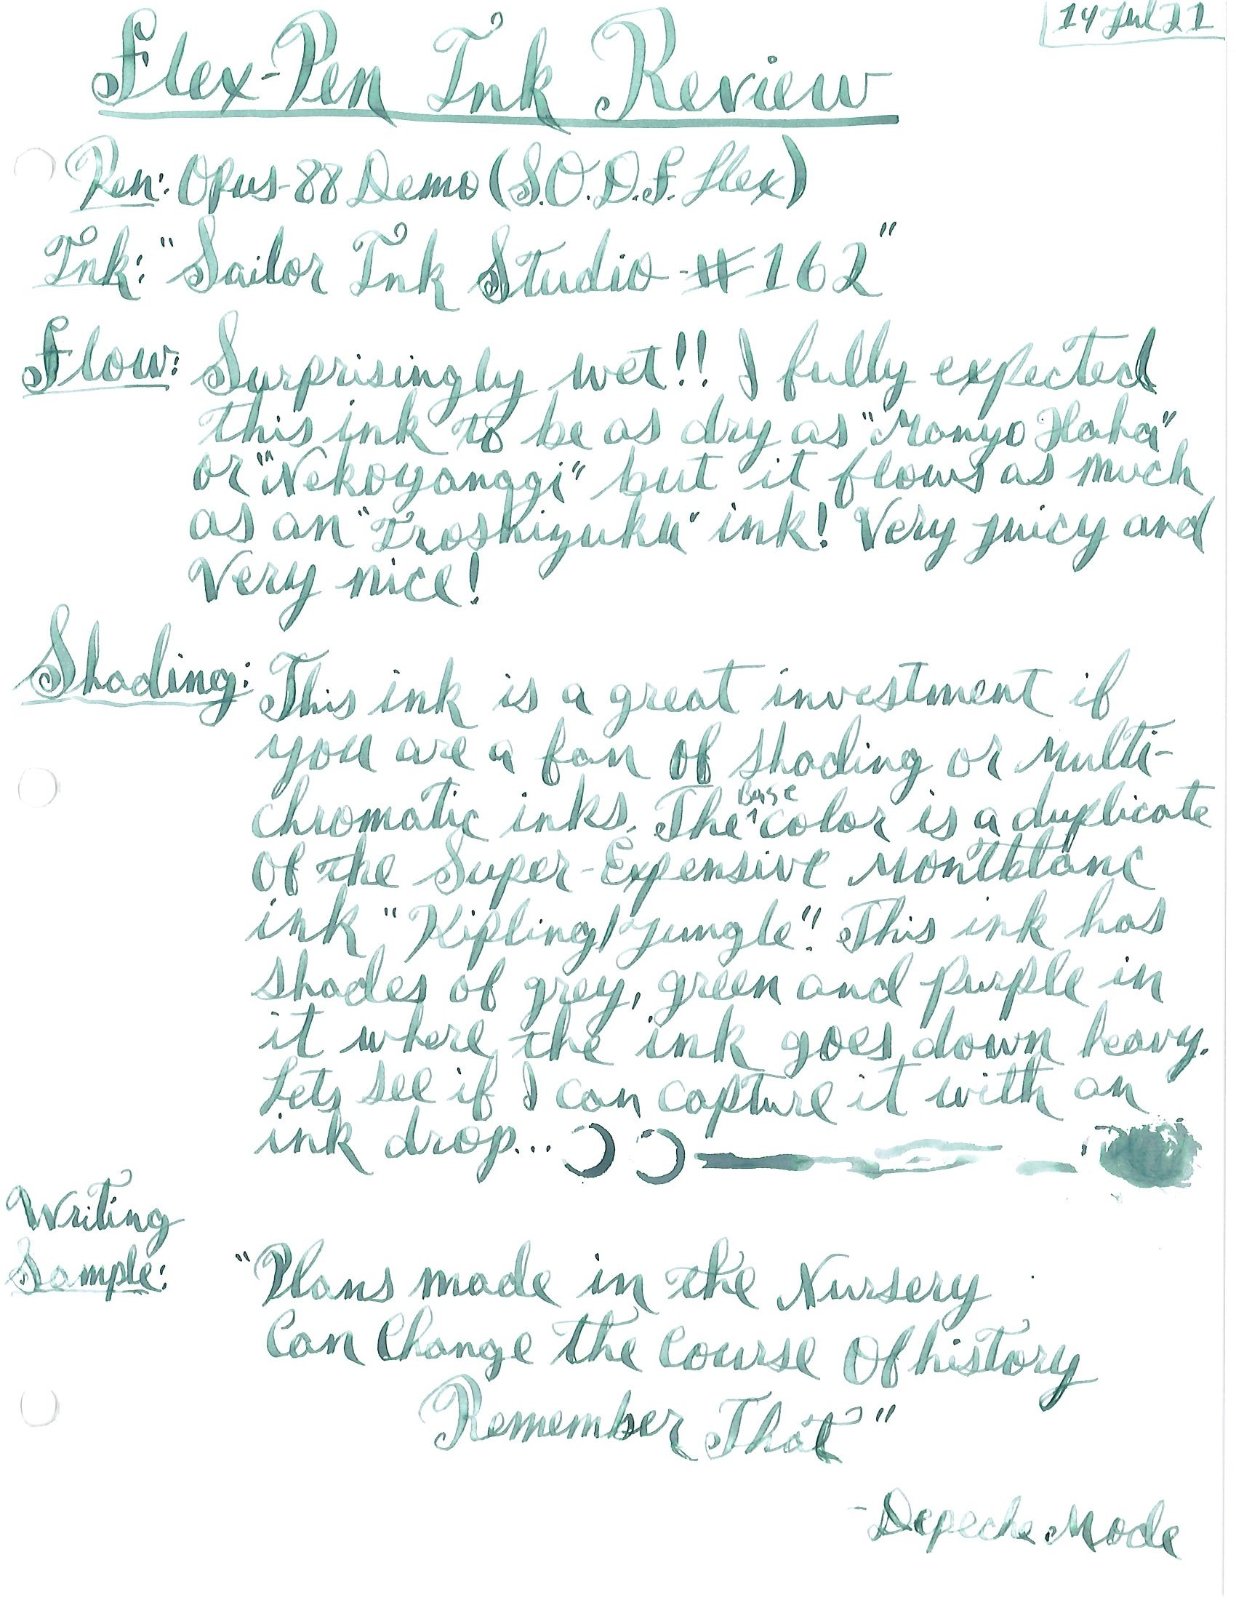 14 Jul 21
Flex-Pen Ink Review
Pen: Opus-88 Demo (S.O.D.F. flex)
Ink: "Sailor Ink Studio #162"
Flow: Surprisingly wet!! I fully expected
this ink to be as dry as "Manyo Haha"
or "Nekoyanagi" but it flows as much
as an "Iroshizuku" ink! Very juicy and
Very nice!
Shading: This ink is a great investment if
you are a fan of shading or multi-
chromatic inks. The ^Base color is a duplicate
Of the Super-Expensive Montblanc
ink "Kipling/Jungle". This ink has
shades of grey, green and purple in
it where the ink goes down heavy.
Lets see if I can capture it with an
ink drop...
Writing
Sample: "Plans made in the Nursery
Can Change the Course Of history
Remember That"
-Depeche Mode